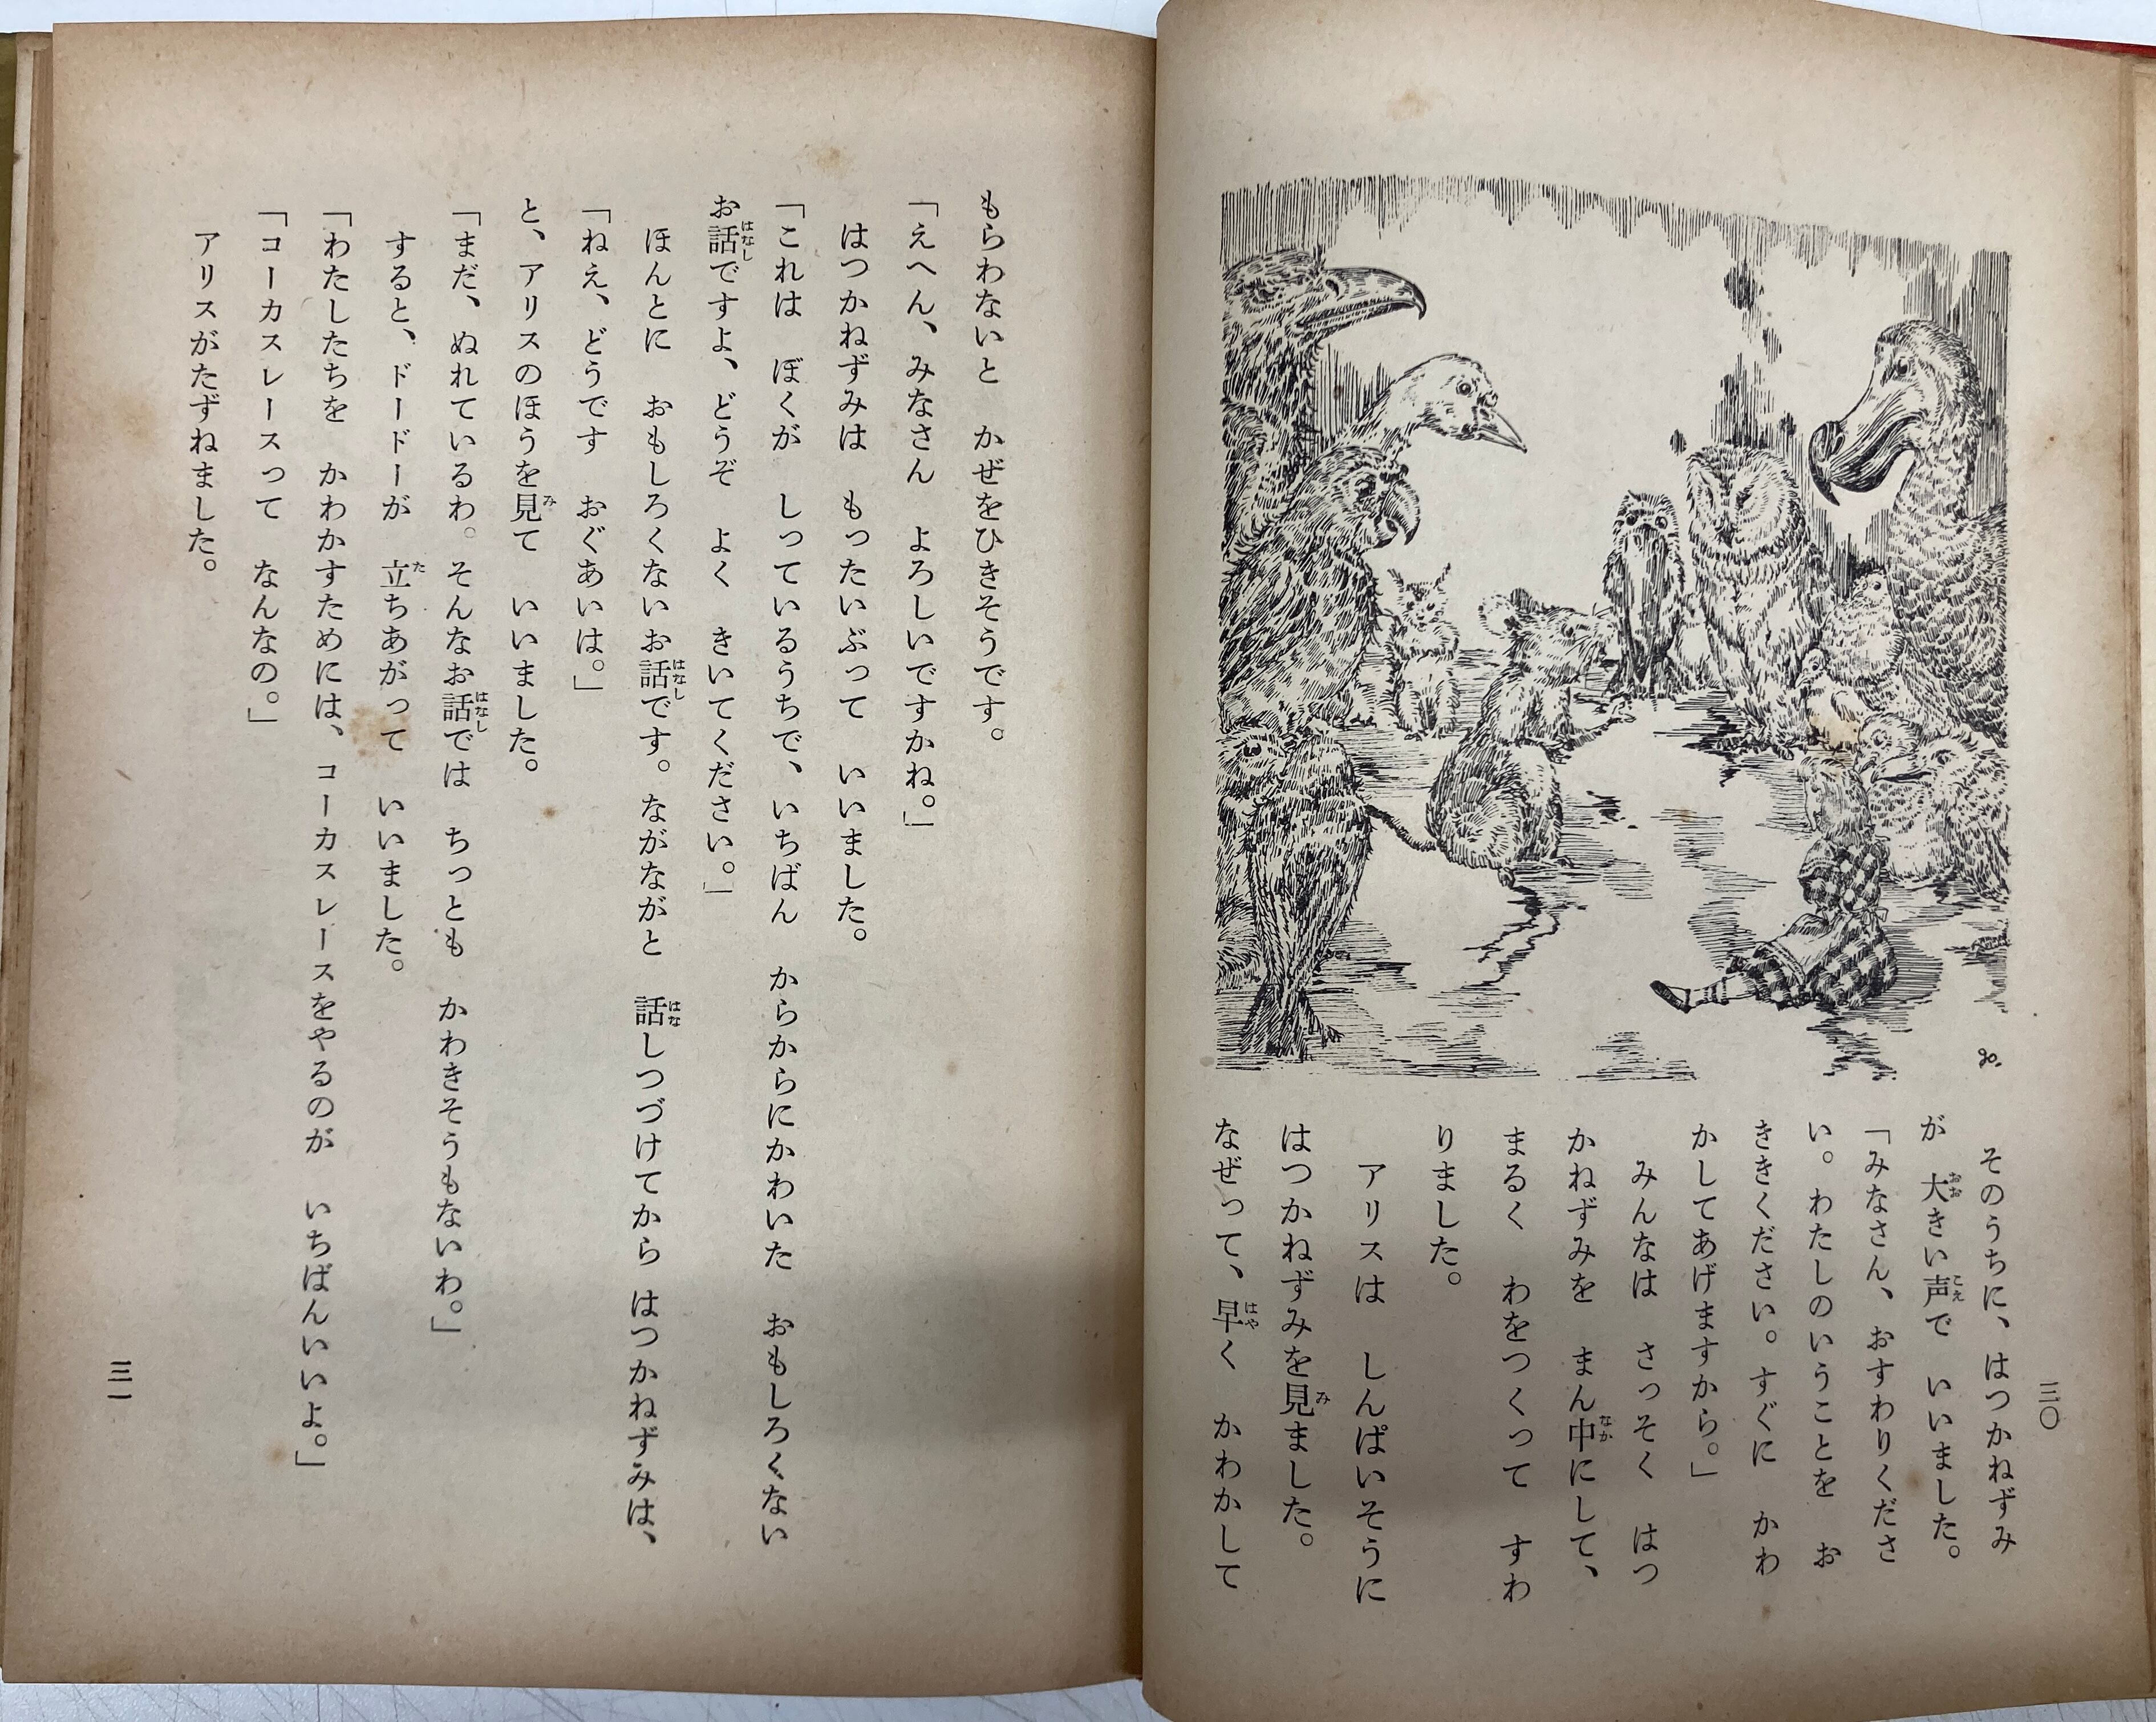 三〇
そのうちに、はつかねずみ
が　大きい声で　いいました。
「みなさん、おすわりくださ
い。わたしのいうことを　お
ききください。すぐに　かわ
かしてあげますから。」
みんなは　さっそく　はつ
かねずみを　まん中にして、
まるく　わをつくって　すわ
りました。
アリスは　しんぱいそうに
はつかねずみを見ました。
なぜって、早く　かわかして
もらわないと　かぜをひきそうです。
「えへん、みなさん　よろしいですかね。」
はつかねずみは　もったいぶって　いいました。
「これは　ぼくが　しっているうちで、いちばん　からからにかわいた　おもしろくない
お話ですよ、どうぞ　よく　きいてください。」
ほんとに　おもしろくないお話です。ながながと　話しつづけてから　はつかねずみは、
「ねえ、どうです　おぐあいは。」
と、アリスのほうを見て　いいました。
「まだ、ぬれているわ。そんなお話では　ちっとも　かわきそうもないわ。」
すると、ドードーが　立ちあがって　いいました。
「わたしたちを　かわかすためには、コーカスレースをやるのが　いちばんいいよ。」
「コーカスレースって　なんなの。」
アリスがたずねました。
三一